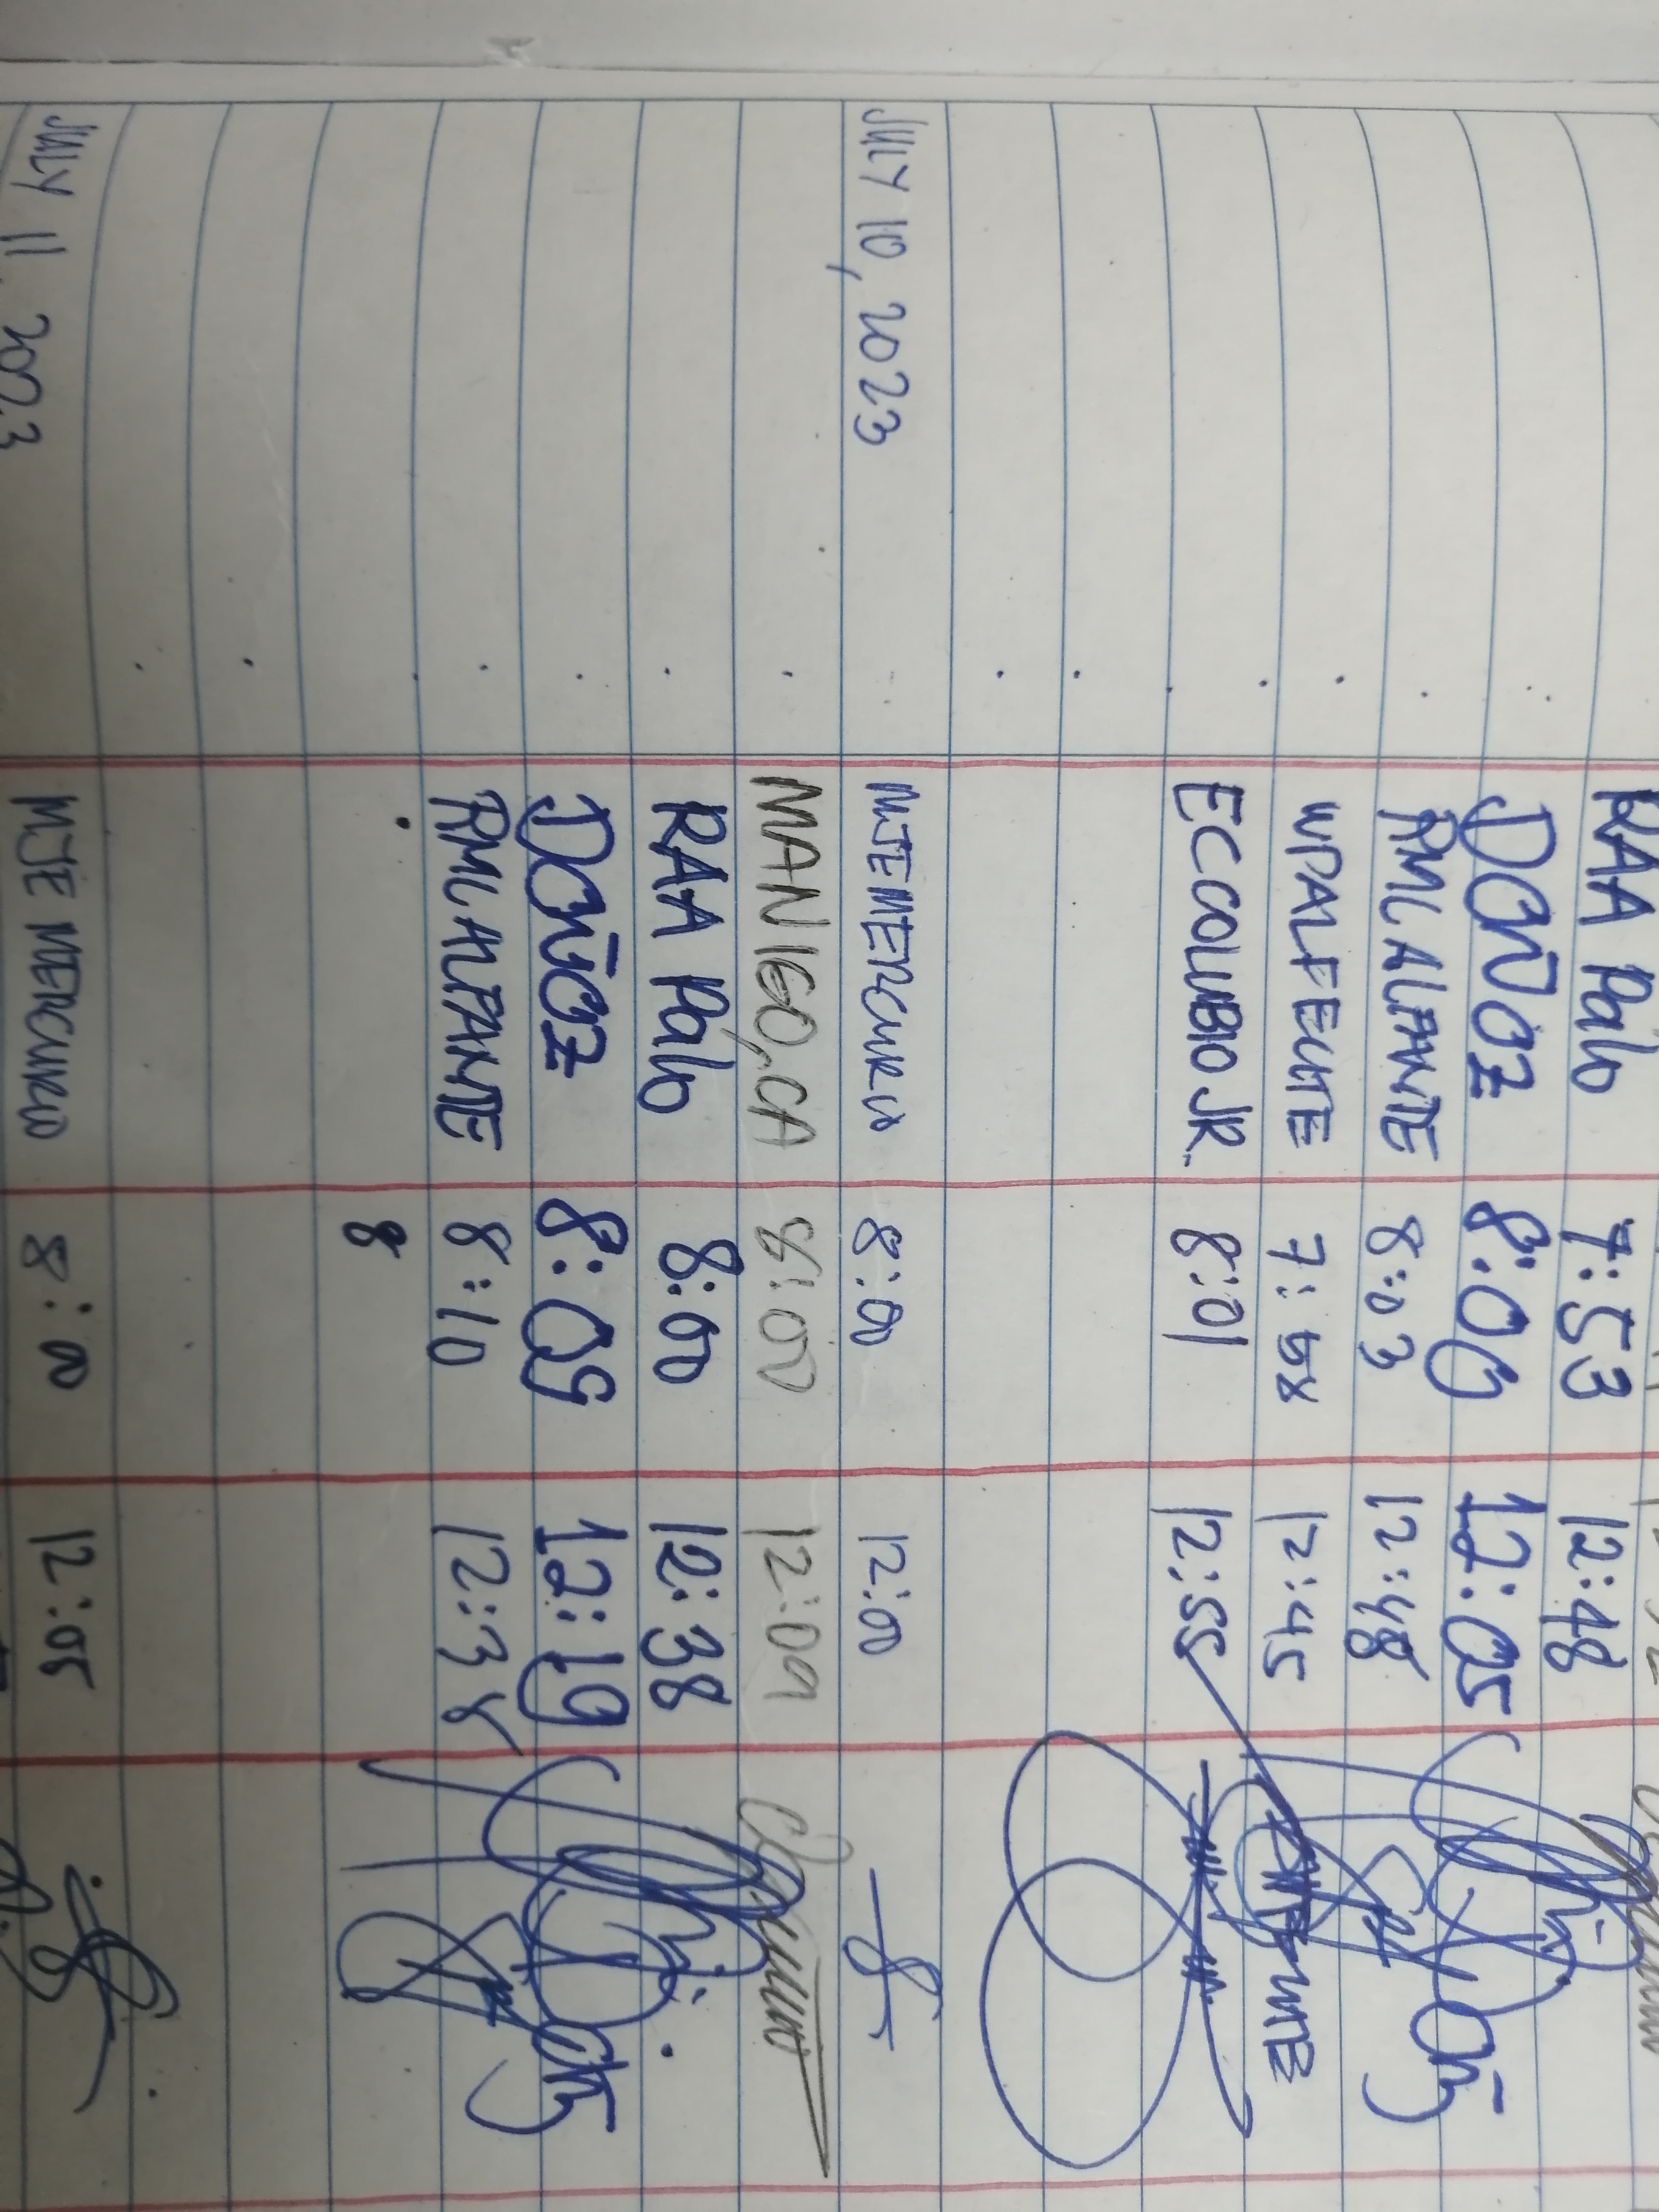 RAA Palo 7:53 12:48
DCÑOZ 8:00 12:05
RMLALPANTE 8:03 12:48
WPALFECHE 7:58 12:45
ECCOLUBIO JR. 8:01 12:55
JULY 10, 2023 MJEMERCURIO 8:00 12:00
MANIGO, CA 8:00 12:09
RAA Palo 8:00 12:38
DCÑOZ 8:09 12:19
RMLALPANTE 8:10 12:38
8
JULY 11, 2023 MJE MERCURIO 8:00 12:05